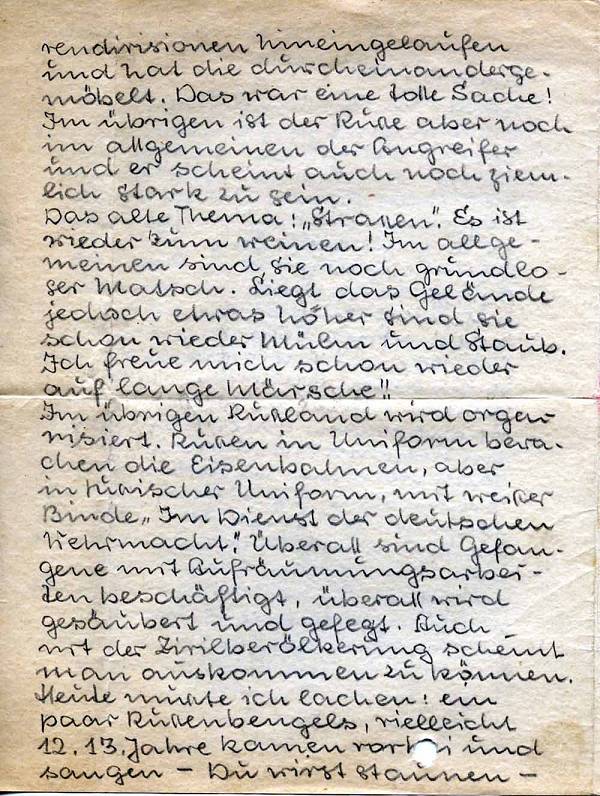 rendivisionen hineingelaufen
und hat die durcheinanderge-
möbelt. Das war eine tolle Sache!
Im übrigen ist der Ruße aber noch
im allgemeinen der Angreifer
und er scheint auch noch ziem-
lich stark zu sein.
Das alte Thema: „Straßen“. Es ist
wieder zum weinen! Im allge-
meinen sind sie noch grundlo-
ser Matsch. Liegt das Gelände
jedoch etwas höher sind sie
schon wieder Mulm und Staub.
Ich freue mich schon wieder
auf lange Märsche!!
Im übrigen Rußland wird orga-
nisiert. Rußen in Uniform bewa-
chen die Eisenbahnen, aber
in rußischer Uniform, mit weißer
Binde „Im Dienst der deutschen
Wehrmacht“. Überall sind Gefan-
gene mit Aufräumungsarbei-
ten beschäftigt, überall wird
gesäubert und gefegt. Auch
mit der Zivilbevölkerung scheint
man auskommen zu können.
Heute mußte ich lachen: ein
paar Rußenbengels, vielleicht
12. 13. Jahre kamen vorbei und
sangen – Du wirst staunen –